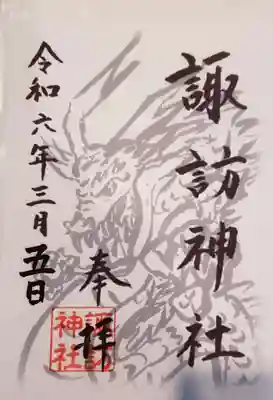 諏訪神社
奉拝
諏訪神社
令和六年三月五日